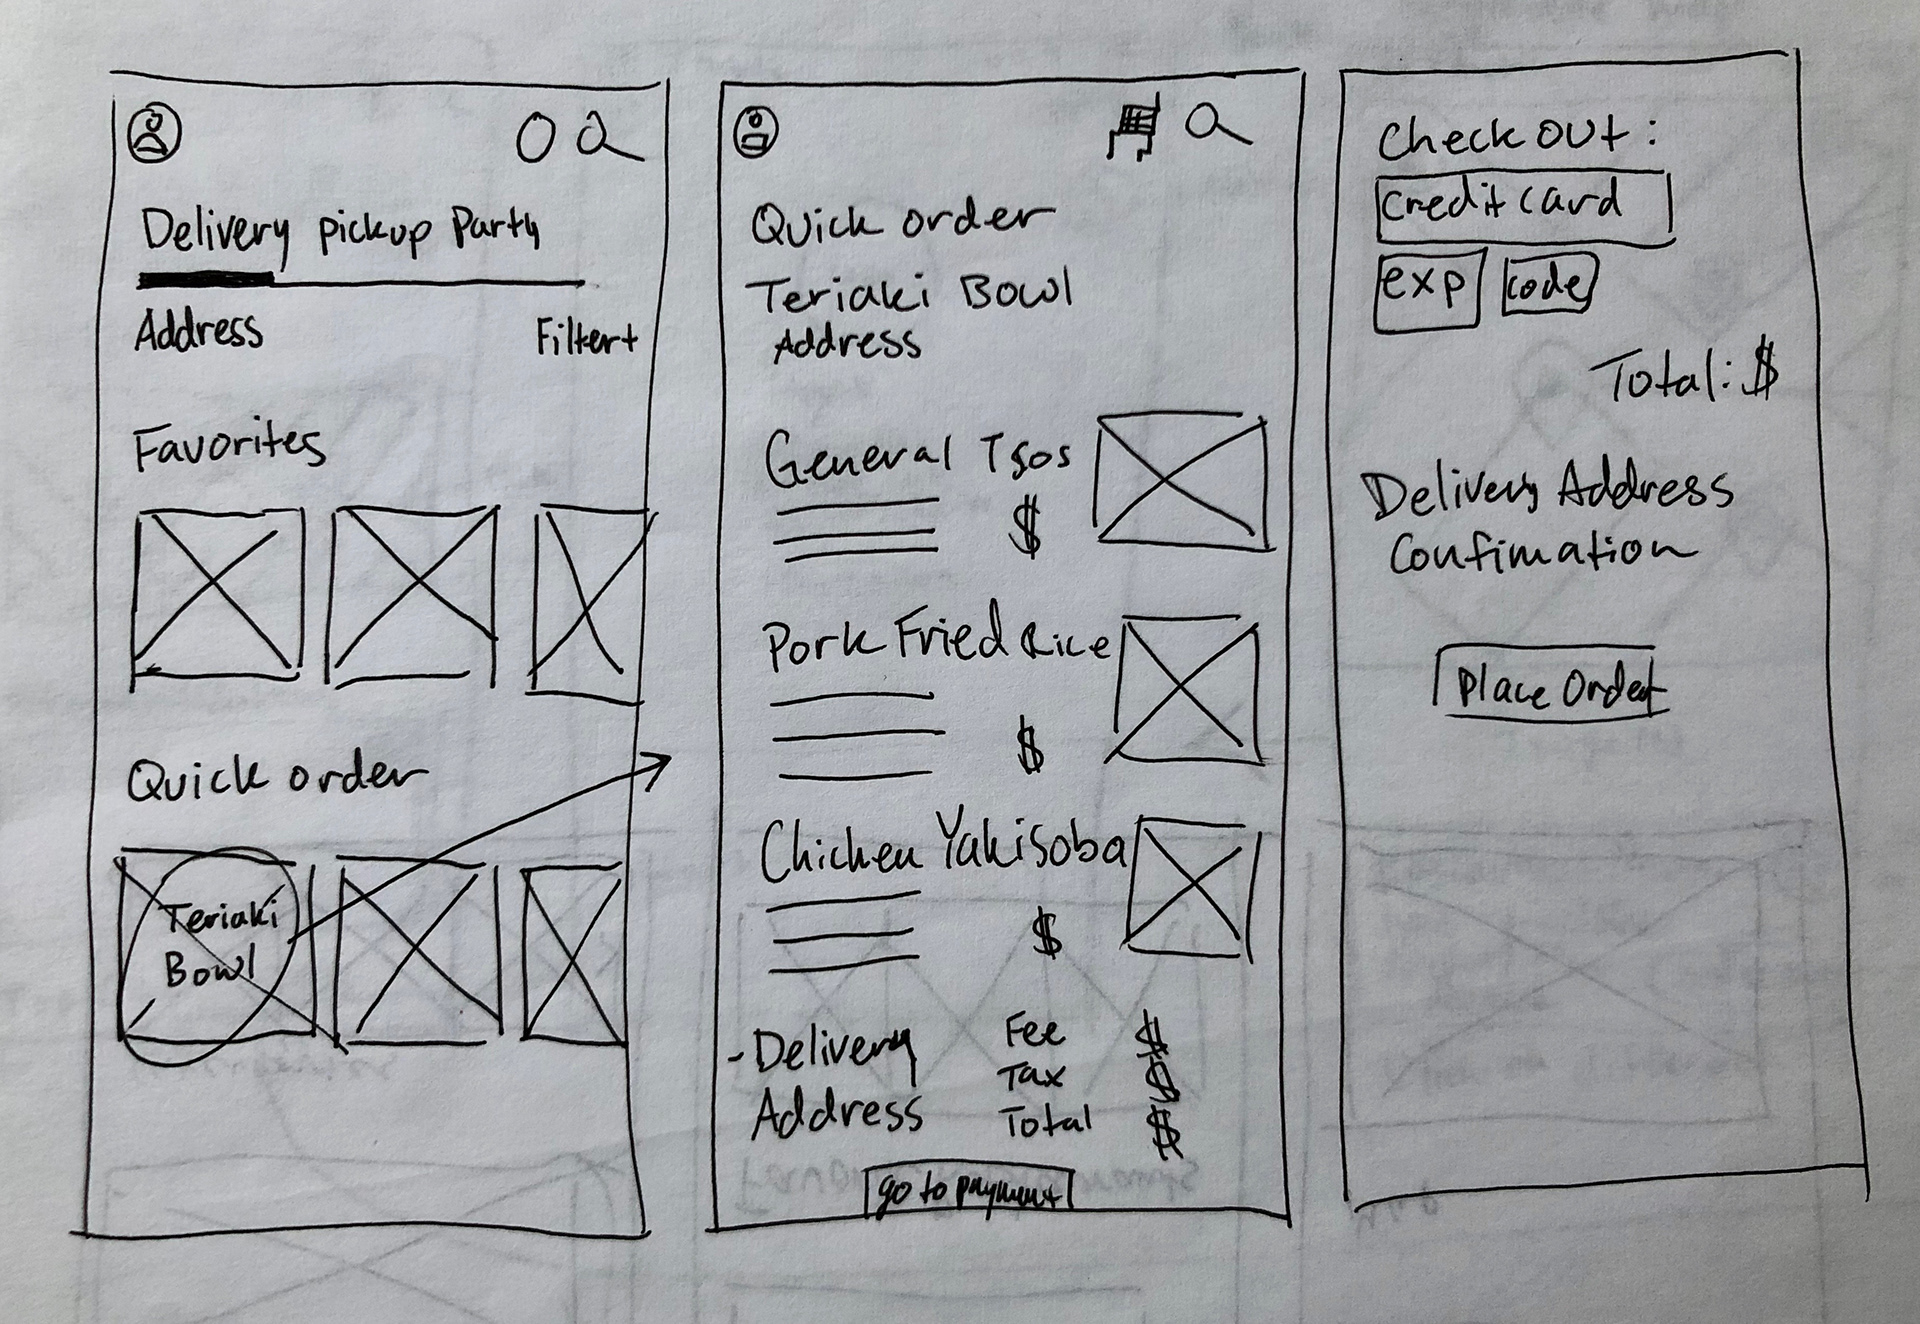 Delivery pickup Party
Address Filter+
Favorites
Quick order
Teriaki
Bowl
Quick order
Teriaki Bowl
Address
General Tsos
$
Pork Fried Rice
$
Chicken Yakisoba
$
- Delivery
Address
Fee $
Tax $
Total $
go to payment
Check out:
credit card
exp code
Total: $
Delivery Address
Confimation
Place Order